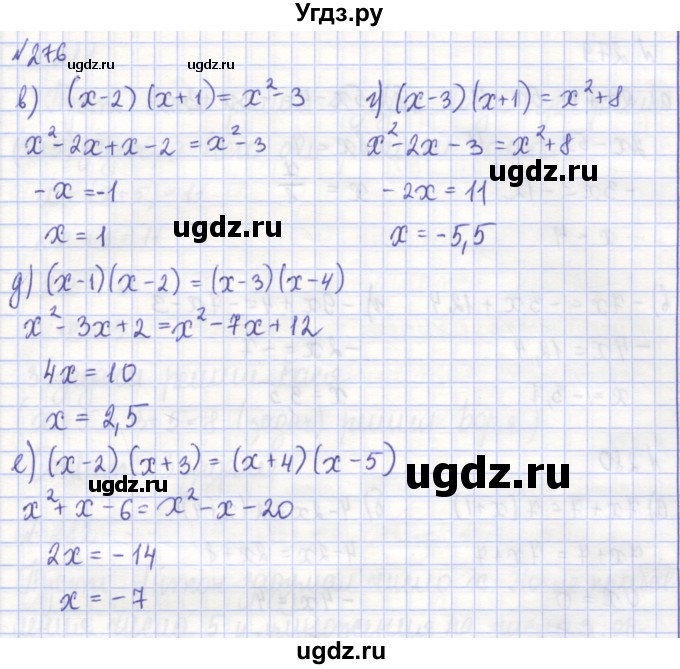 Угдз.ру
№276
ugdz.ru
в) (x-2)(x+1) = x²-3
x²-2x+x-2 = x²-3
-x = -1
x = 1
г) (x-3)(x+1) = x²+8
x²-2x-3 = x²+8
ugdz.ru
-2x = 11
x = -5,5
ugdz.ru
д) (x-1)(x-2) = (x-3)(x-4)
x²-3x+2 = x²-7x+12
4x = 10
x = 2,5
е) (x-2)(x+3) = (x+4)(x-5)
ugdz.ru
ugdz.ru
x²+x-6 = x²-x-20
2x = -14
x = -7
ugdz.ru